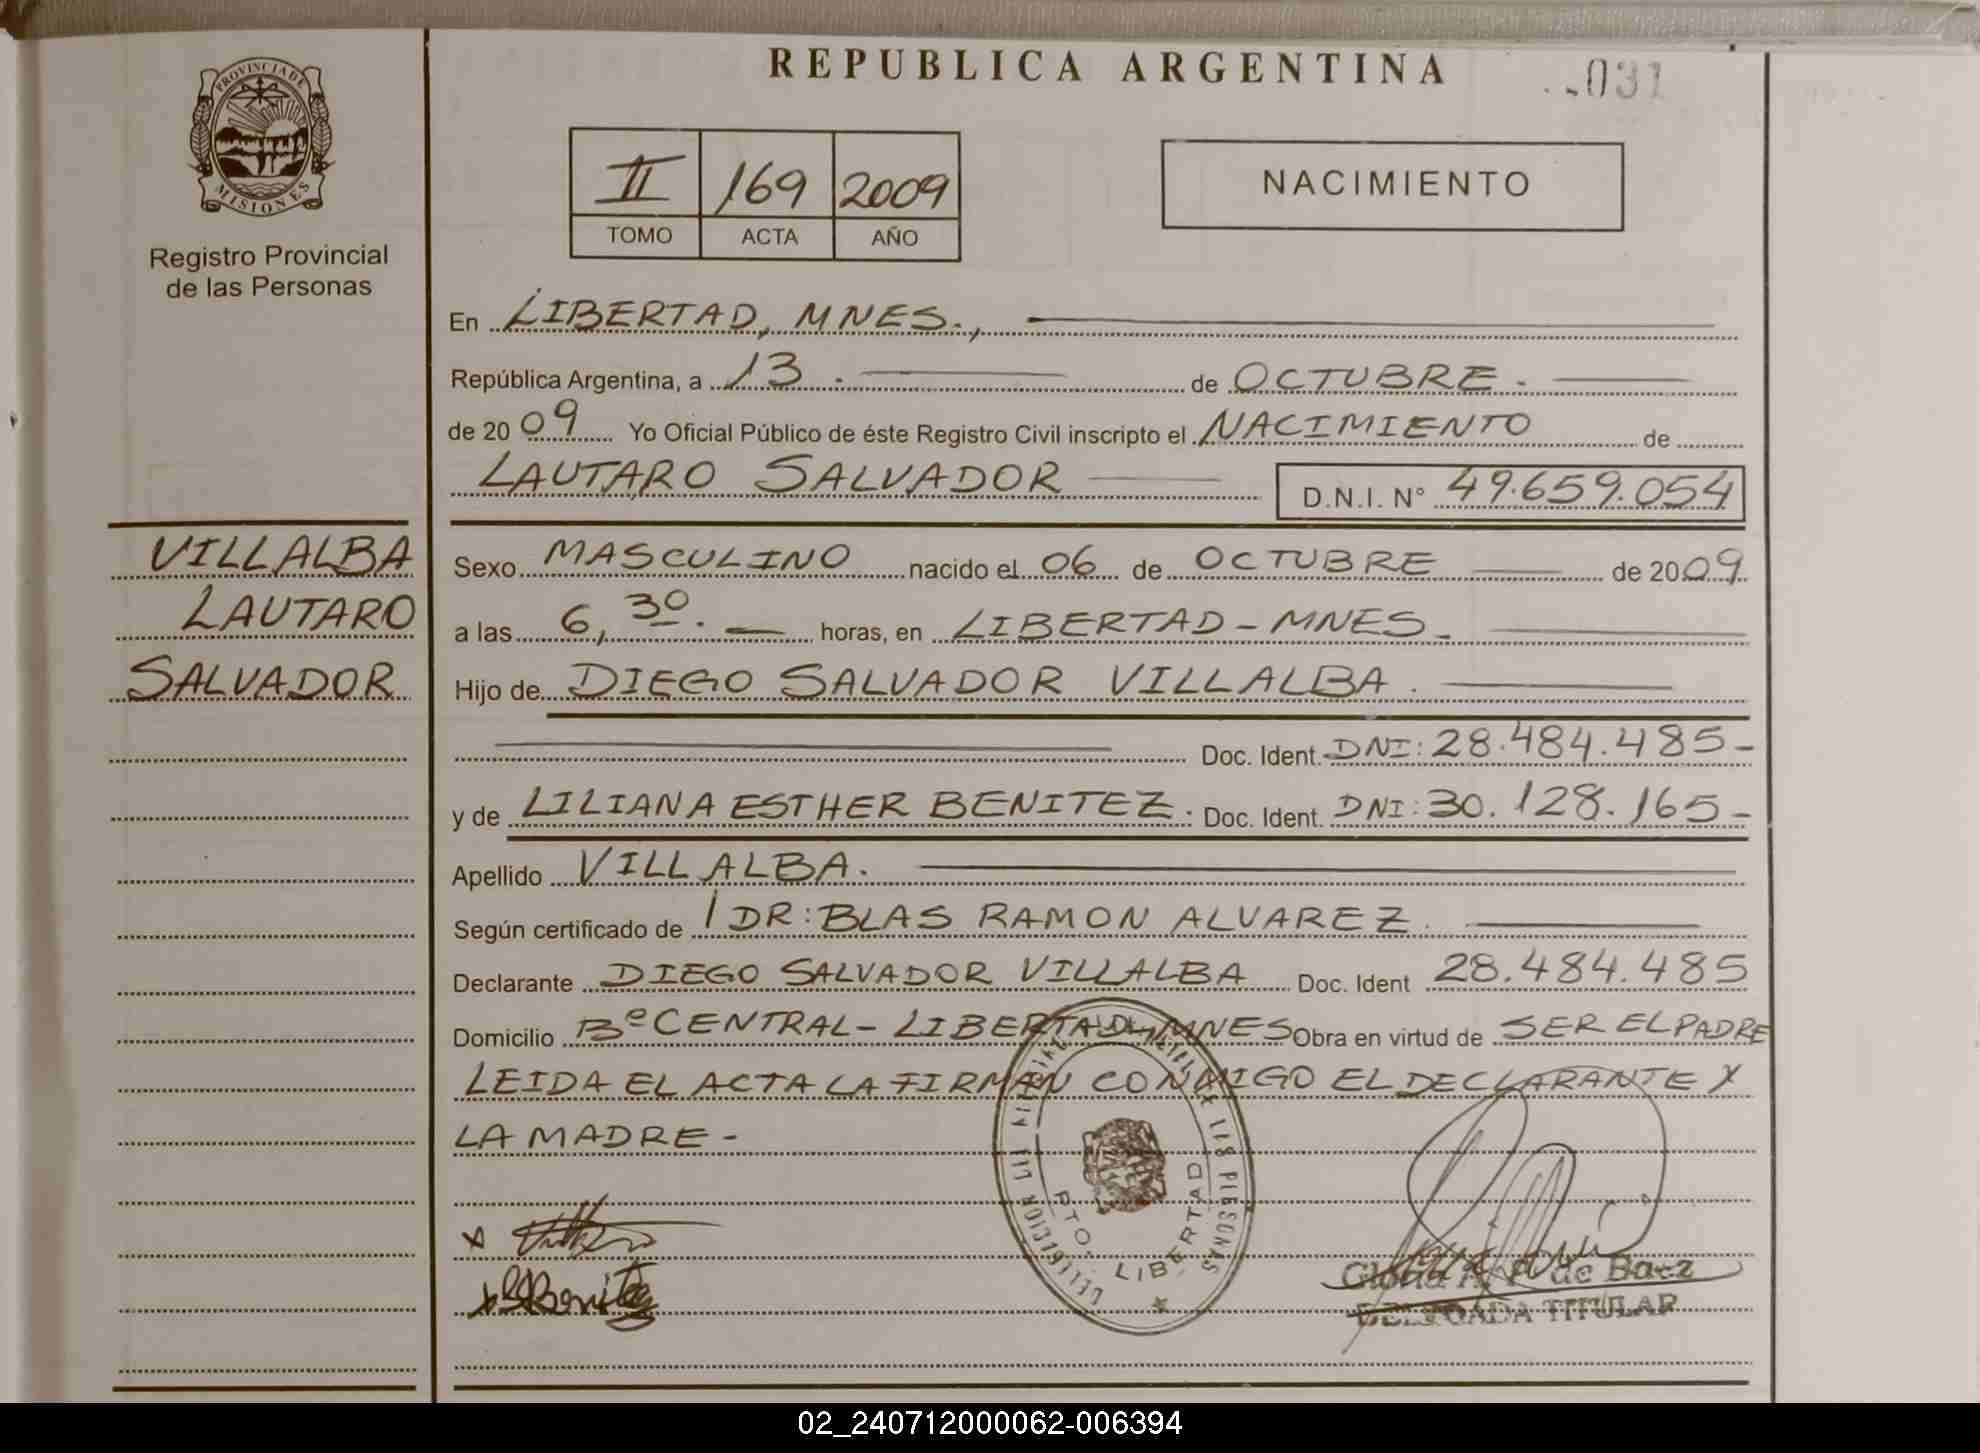 PROVINCIA DE
MISIONES
Registro Provincial
de las Personas
VILLALBA
LAUTARO
SALVADOR
REPUBLICA ARGENTINA
031
II 169 2009
TOMO ACTA AÑO
NACIMIENTO
En LIBERTAD, MNES.,
República Argentina, a 13. de OCTUBRE.
de 2009 Yo Oficial Público de éste Registro Civil inscripto el NACIMIENTO de
LAUTARO SALVADOR D.N.I. N° 49.659.054
Sexo MASCULINO nacido el 06 de OCTUBRE de 2009
a las 6,30. horas, en LIBERTAD - MNES.
Hijo de DIEGO SALVADOR VILLALBA.
Doc. Ident. DNI: 28.484.485-
y de LILIANA ESTHER BENITEZ. Doc. Ident. DNI: 30.128.165-
Apellido VILLALBA.
Según certificado de DR: BLAS RAMON ALVAREZ.
Declarante DIEGO SALVADOR VILLALBA Doc. Ident 28.484.485
Domicilio B° CENTRAL - LIBERTAD, MNES Obra en virtud de SER EL PADRE
LEIDA EL ACTA LA FIRMAN CONMIGO EL DECLARANTE Y
LA MADRE -
PTO. LIBERTAD
Benitez
de Baez
TITULAR
02_240712000062-006394